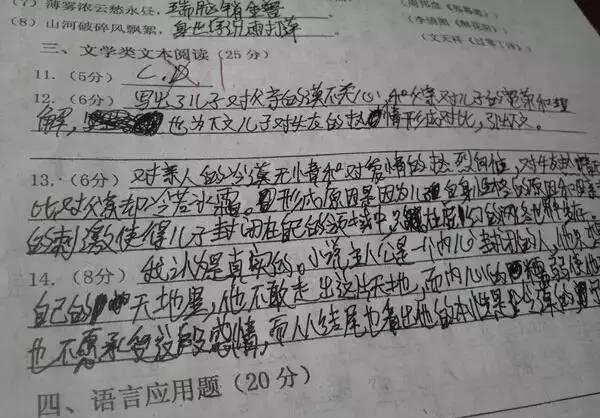 (7) 薄雾浓云愁永昼，瑞脑销金兽
(8) 山河破碎风飘絮，身世浮沉雨打萍
(文天祥《过零丁洋》)
三、文学类文本阅读（25分）
11.（5分） C、D
12.（6分） 写出了儿子对父亲的漠不关心，和父亲对儿子的宽容和理
解，也为下文儿子对女友的热情形成对比，引出下文。
13.（6分）对亲人的冷漠无情和对爱情的热烈向往，对女友热
比对父亲却冷若冰霜。形成原因是因为儿子自身性格的原因和
的刺激使得儿子封闭在自己的领域中，
14.（8分） 我认为是真实的。小说主人公是一个内心封闭的人，他
自己的天地里，他不敢走出这片天地，而内心的
也不愿承受这段感情，而从小结尾也看出他的本性是冷漠的
四、语言应用题（20分）